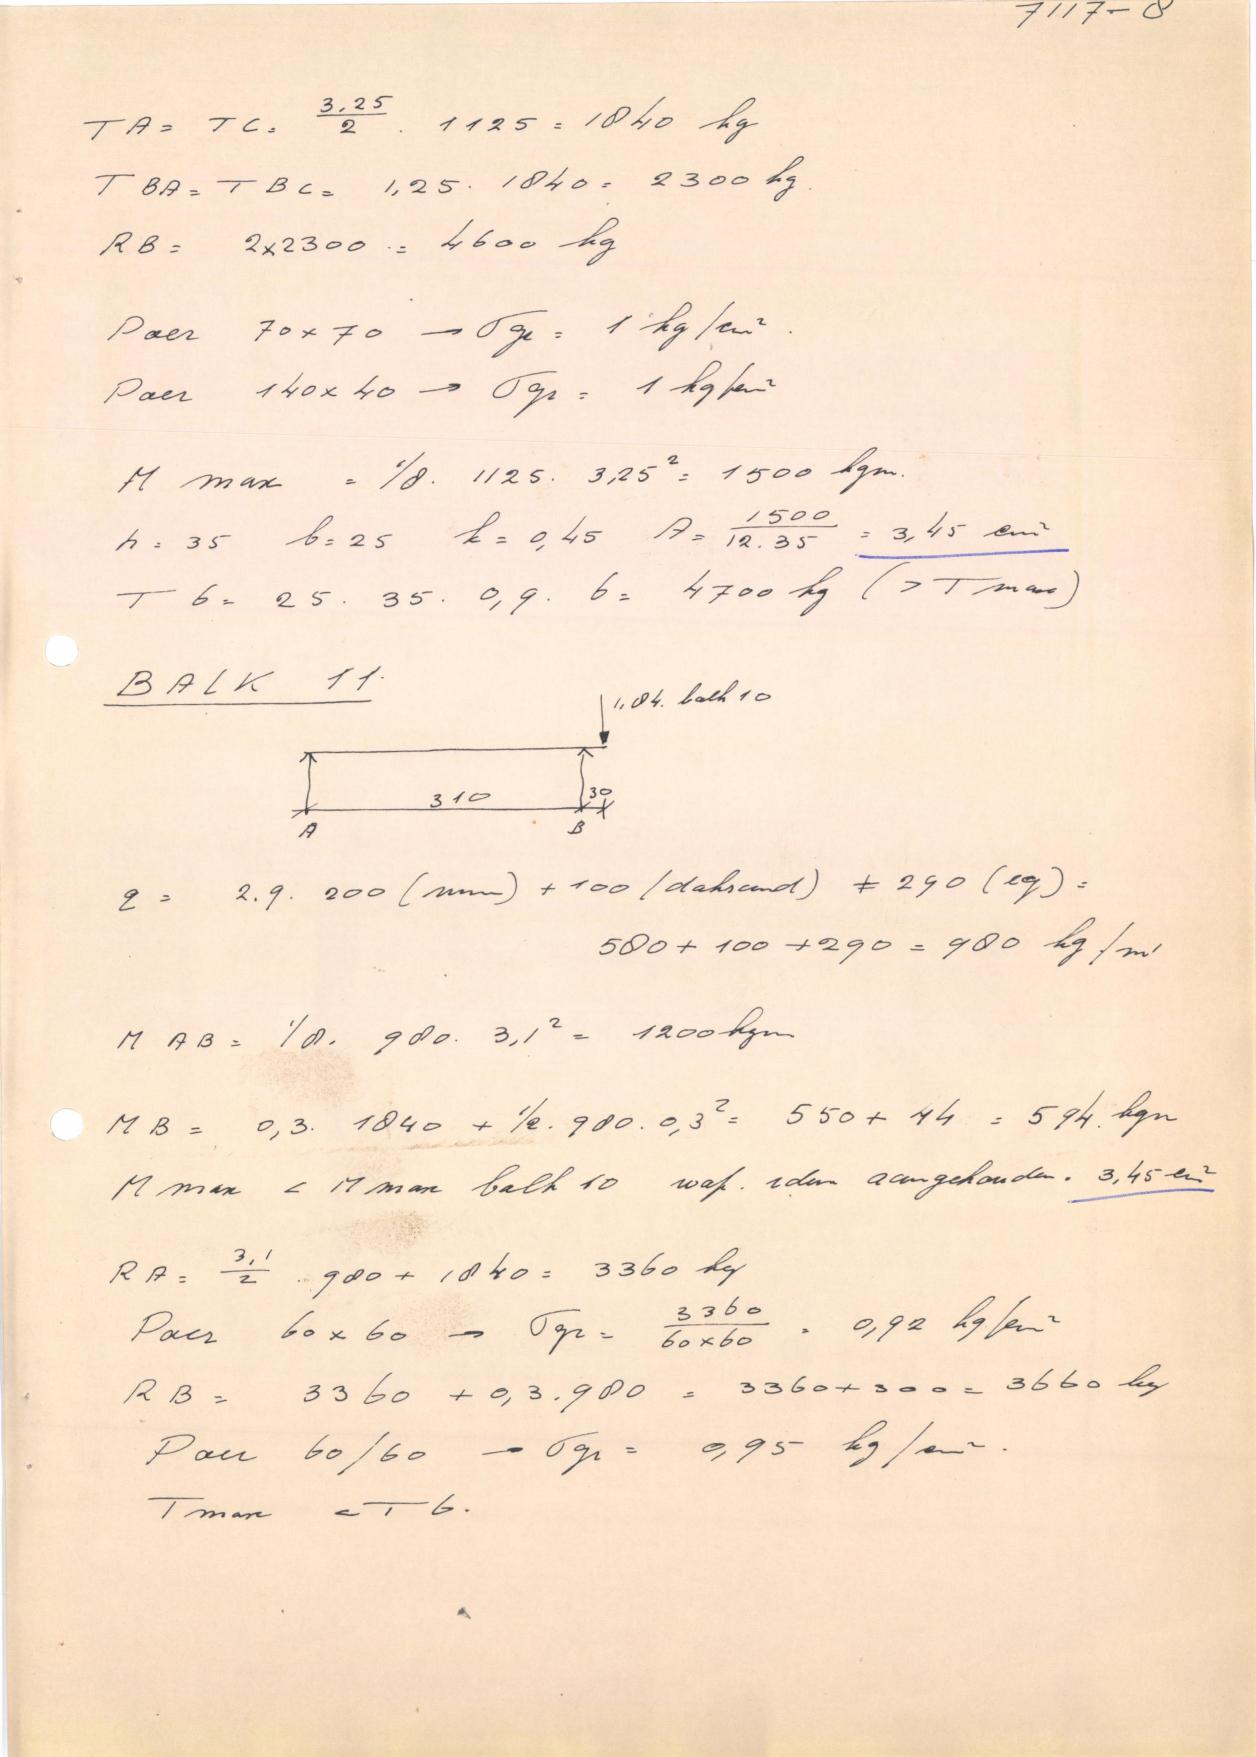 7117-8
TA = TC = 3,25/2 . 1125 = 1840 kg
TBA = TBC = 1,25 . 1840 = 2300 kg.
RB = 2x2300 = 4600 kg
Poer 70x70 → σgr = 1 kg/cm².
Poer 140x40 → σgr = 1 kg/cm²
M max = 1/8 . 1125 . 3,25² = 1500 kgm.
h = 35 b = 25 k = 0,45 A = 1500/12.35 = 3,45 cm²
T b = 25 . 35 . 0,9 . 6 = 4700 kg (> T max)
BALK 11.
1,84. balk 10
310
30
A B
q = 2.9. 200 (muur) + 100 (dakrand) + 290 (eg) =
580 + 100 + 290 = 980 kg/m'
M AB = 1/8 . 980 . 3,1² = 1200 kgm
M B = 0,3 . 1840 + 1/2 . 980 . 0,3² = 550 + 44 = 594 kgm
M max < M max balk 10 wap. idem aangehouden. 3,45 cm²
RA = 3,1/2 . 980 + 1840 = 3360 kg
Poer 60 x 60 → σgr = 3360/60x60 = 0,92 kg/cm²
RB = 3360 + 0,3 . 980 = 3360 + 300 = 3660 kg
Poer 60/60 → σgr = 0,95 kg/cm².
T max < T b.